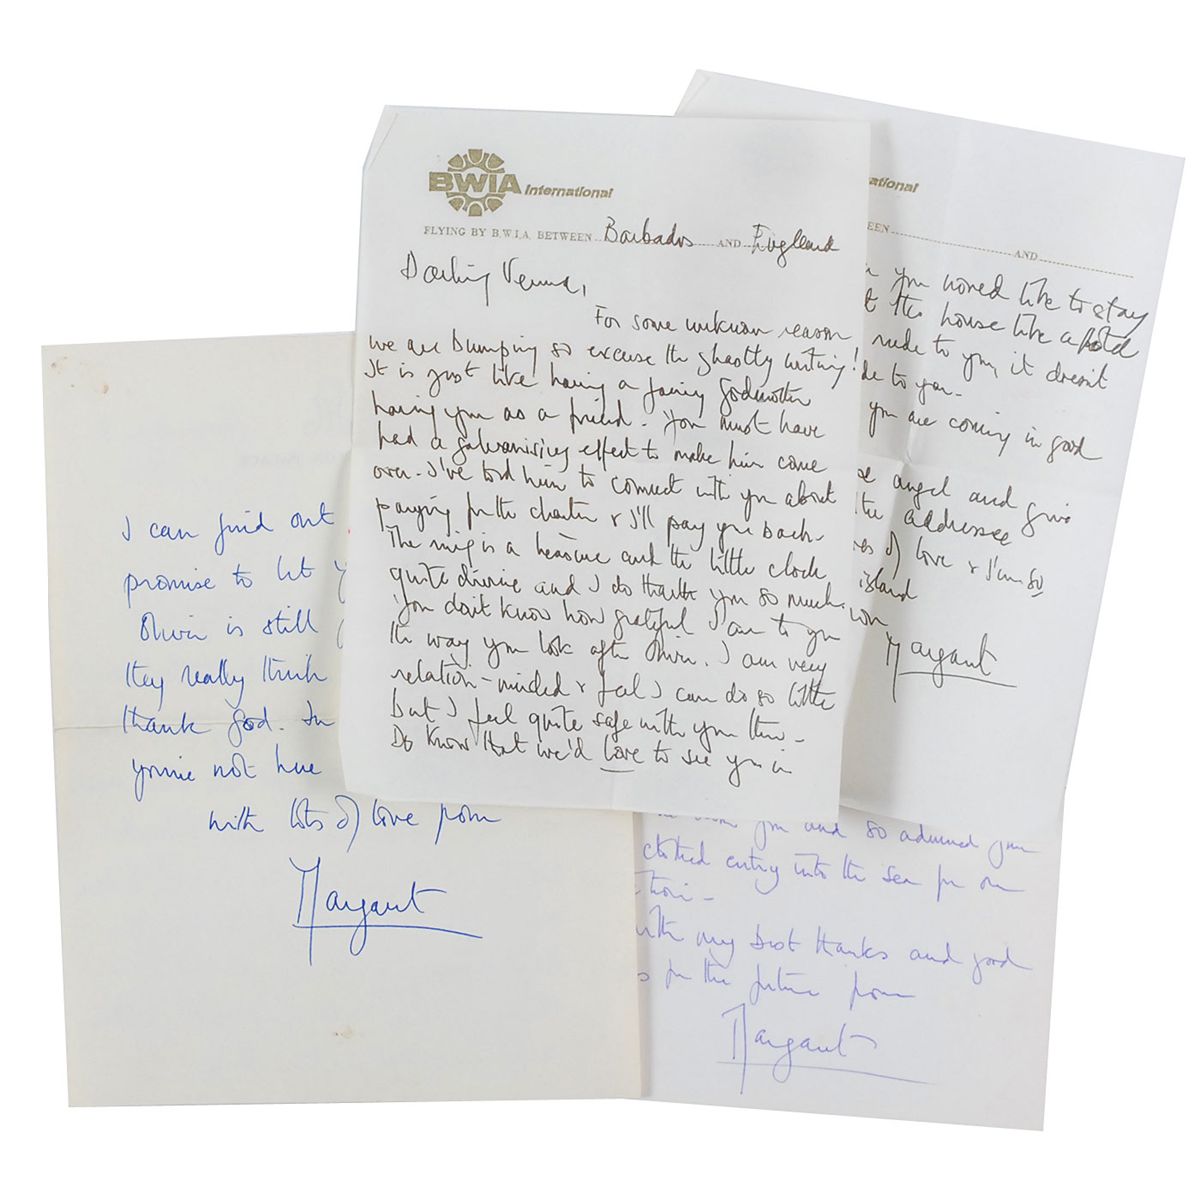 BWIA International
FLYING BY B.W.I.A. BETWEEN Barbados AND England
Darling Verna,
For some unknown reason
we are bumping so excuse the ghastly writing!
It is just like having a fairy godmother
having you as a friend. You must have
had a galvanising effect to make him come
over. I've told him to connect with you about
paying for the charter & I'll pay you back.
The mig is a heroine and the little clock
quite divine and I do thank you so much.
You don't know how grateful I am to you
the way you look after Oliver. I am very
relation-minded & feel I can do so little
but I feel quite safe with you there -
Do know that we'd love to see you in
ational
EEN AND
you like to stay
the house like a hotel
rude to you, it doesn't
de to you.
you are coming in good
angel and give
the addressee
of love & I'm so
island
Margaret
I can find out
promise to let
Oliver is still
they really think
thank God. In
you're not here
with lots of love from
Margaret
you and so admired your
clothed entry into the sea for our
with my best thanks and good
for the future from
Margaret